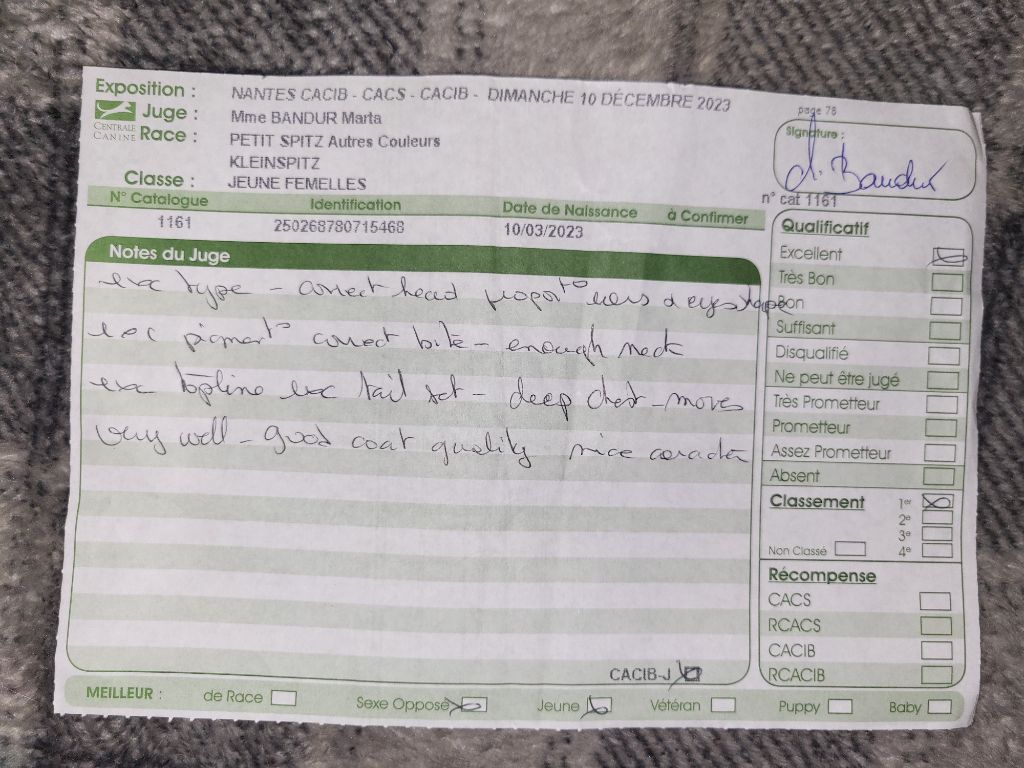 Exposition : NANTES CACIB - CACS - CACIB - DIMANCHE 10 DÉCEMBRE 2023
Juge : Mme BANDUR Marta
CENTRALE CANINE
Race : PETIT SPITZ Autres Couleurs
KLEINSPITZ
Classe : JEUNE FEMELLES
page 76
Signature :
M. Bandur
n° cat 1161
N° Catalogue Identification Date de Naissance à Confirmer
1161 250268780715468 10/03/2023
Notes du Juge
exc type - correct head proport° ears & eyes shape
exc pigment° correct bite - enough neck
exc topline exc tail set - deep chest - moves
very well - good coat quality nice caracter
CACIB-J
Qualificatif
Excellent
Très Bon
Bon
Suffisant
Disqualifié
Ne peut être jugé
Très Prometteur
Prometteur
Assez Prometteur
Absent
Classement 1er
2e
3e
Non Classé 4e
Récompense
CACS
RCACS
CACIB
RCACIB
MEILLEUR : de Race Sexe Opposé Jeune Vétéran Puppy Baby